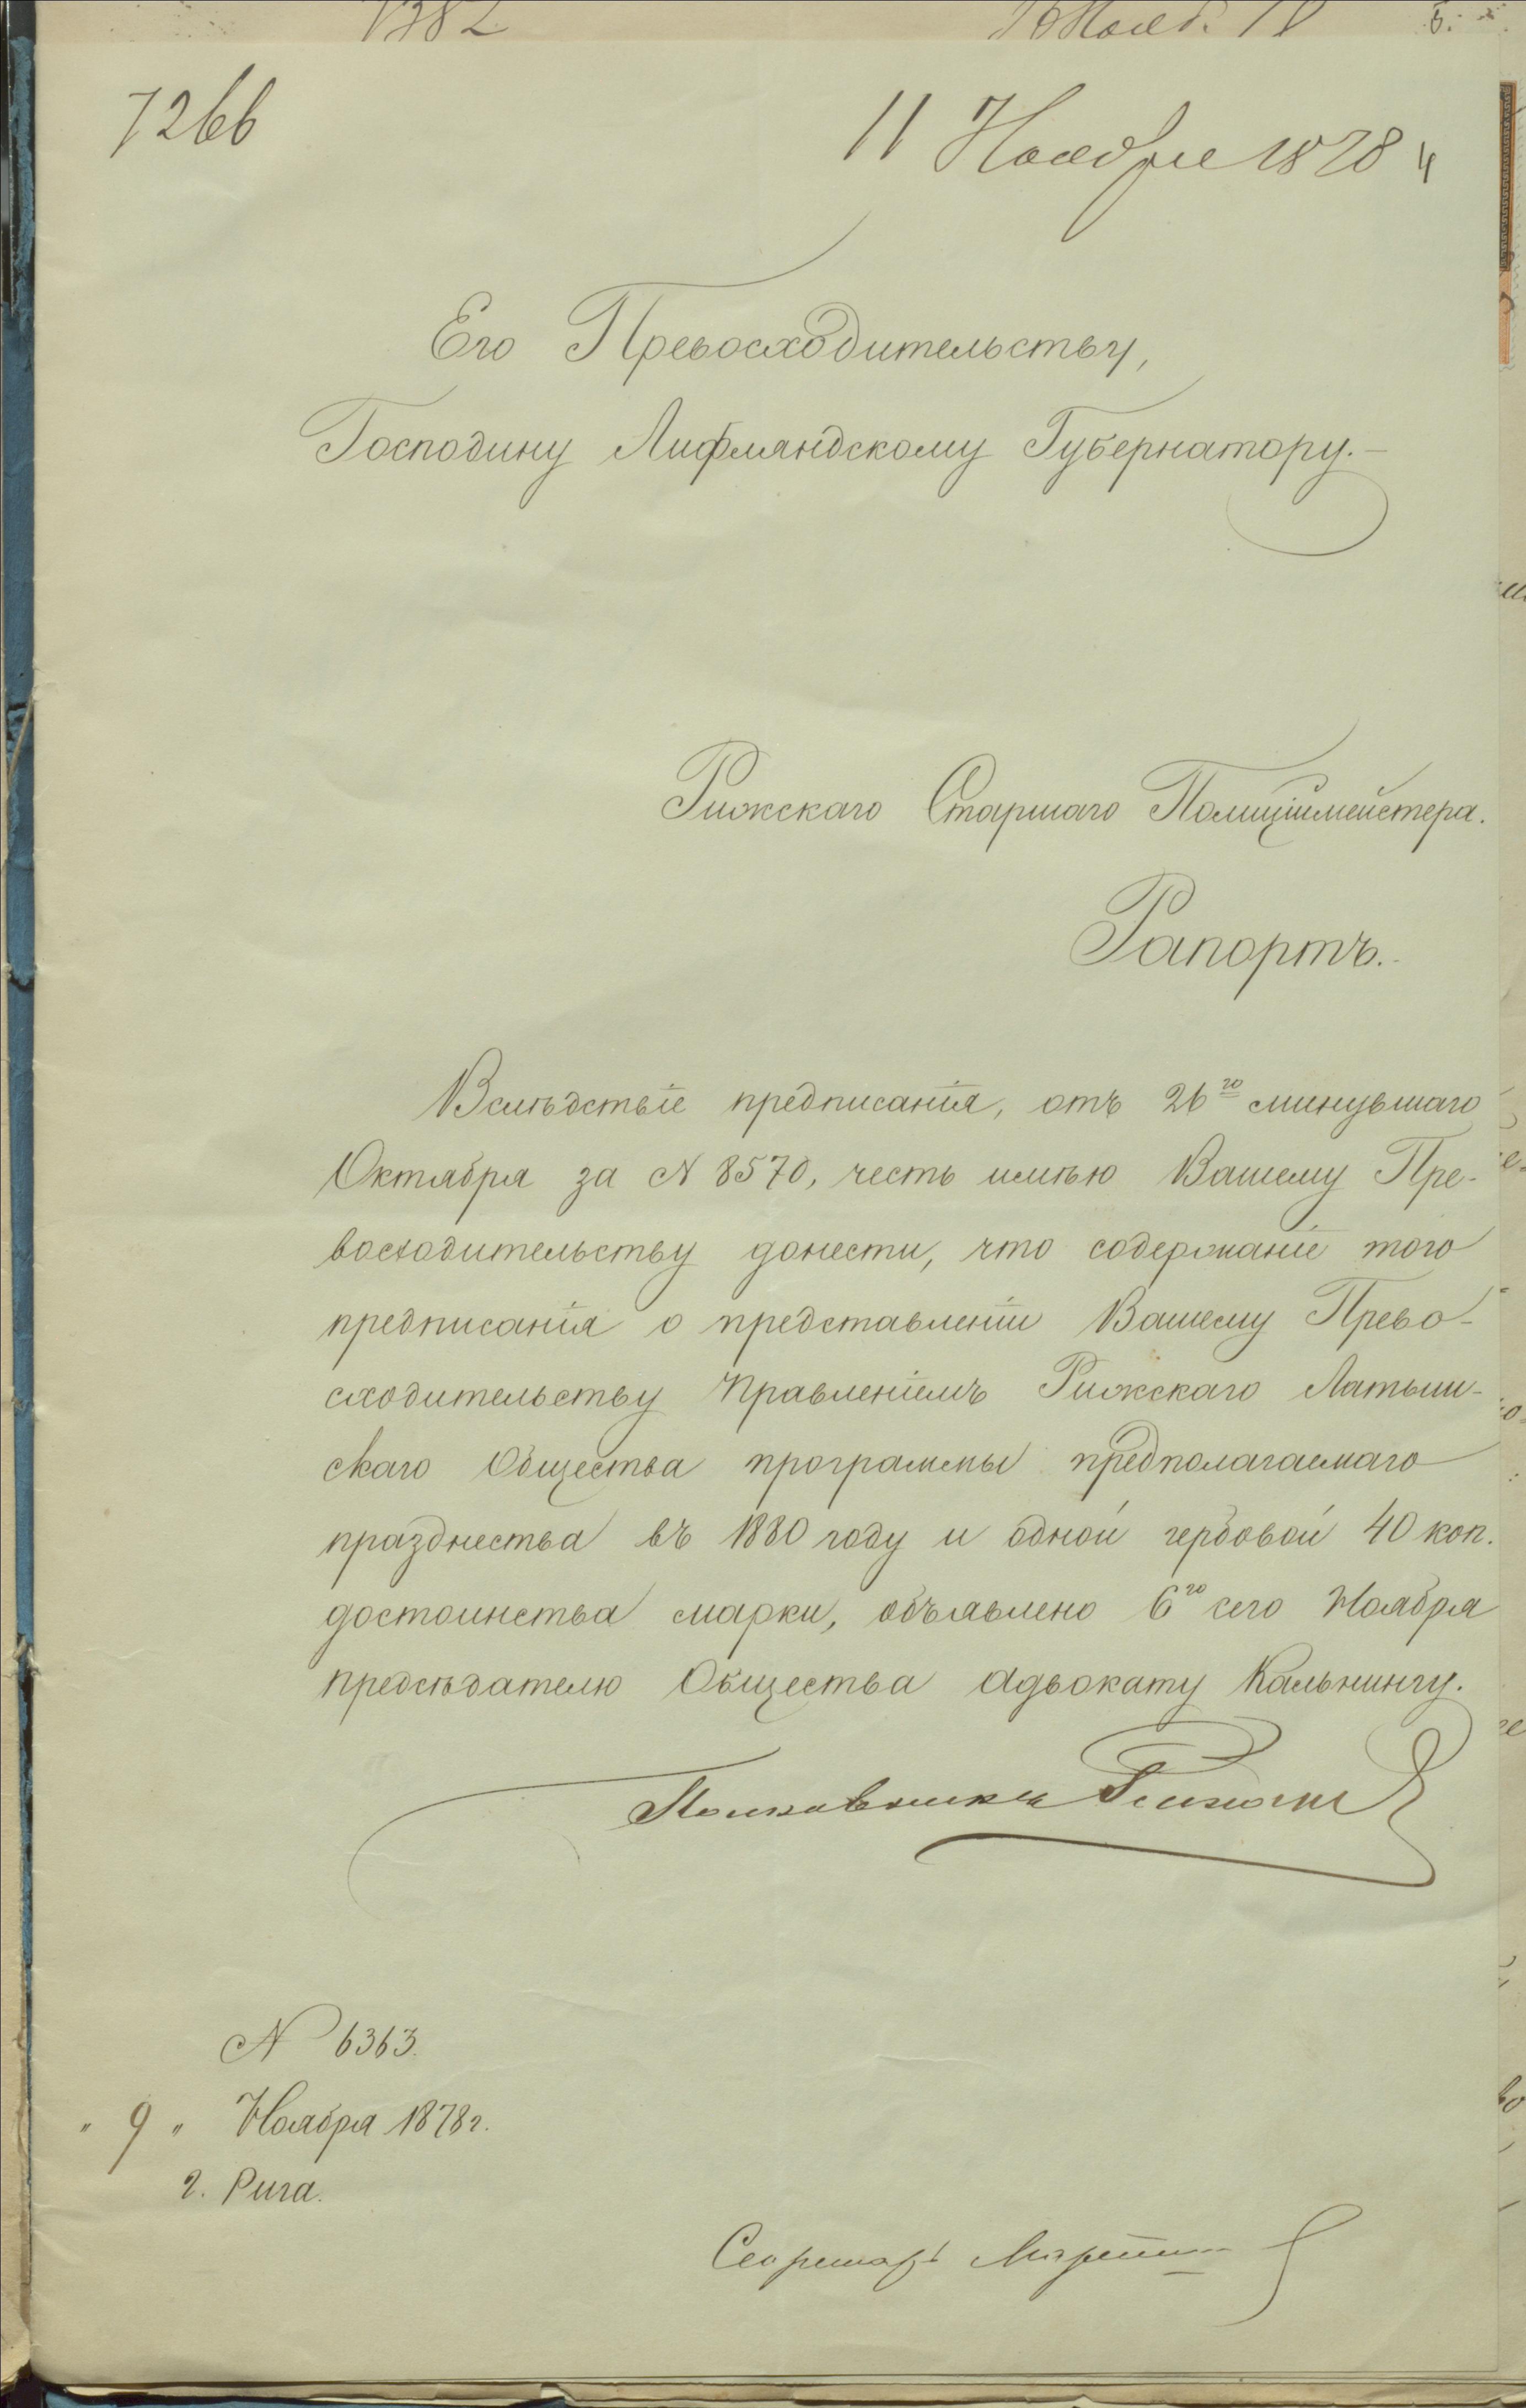 1382
7266
11 Ноября 1878 4
Его Превосходительству,
Господину Лифляндскому Губернатору.-
Рижскаго Старшаго Полиціймейстера.
Рапортъ.
Вслѣдствіе предписанія, отъ 26го минувшаго
Октября за № 8570, честь имѣю Вашему Пре-
восходительству донести, что содержаніе того
предписанія о представленіи Вашему Прево-
сходительству Правленіемъ Рижскаго Латыш-
скаго Общества программы предполагаемаго
празднества въ 1880 году и одной гербовой 40 коп.
достоинства марки, объявлено 6го сего Ноября
предсѣдателю Общества адвокату Кальнингу.
Полковникъ
№ 6363.
" 9 " Ноября 1878 г.
г. Рига.
Секретарь